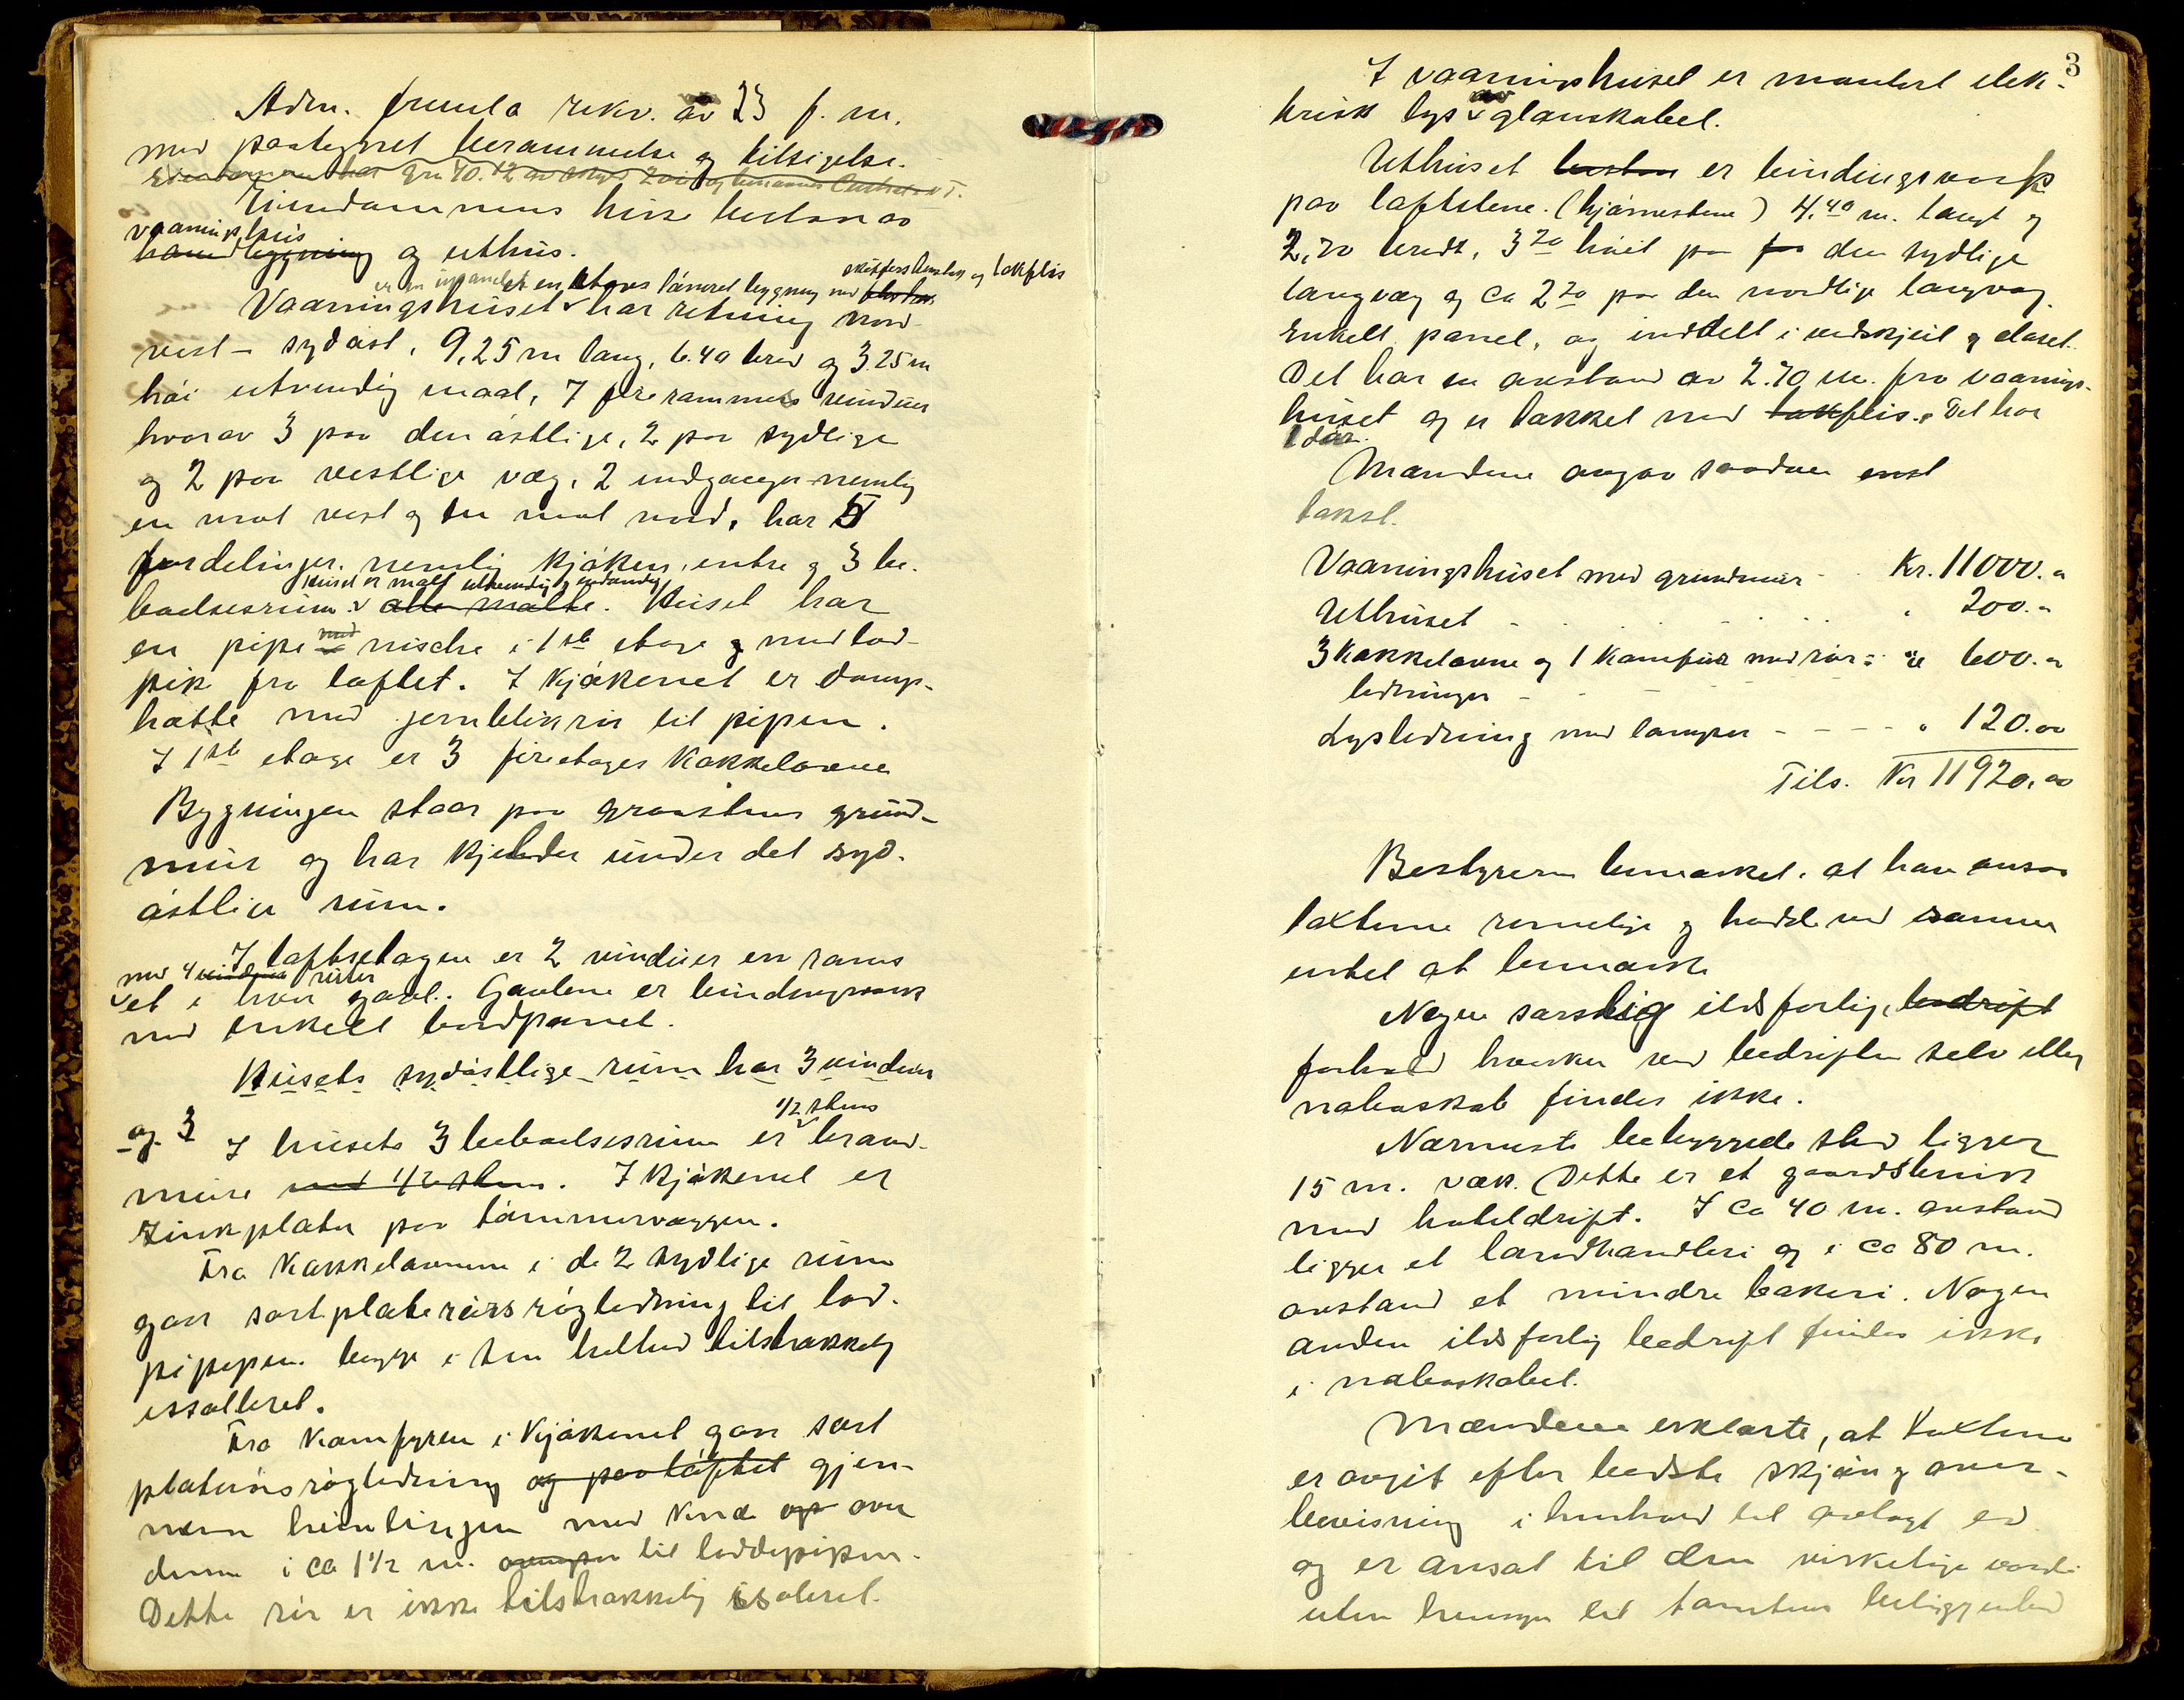 Adm. fremla rekv. av 23 f. m.
med paategnet berammelse og tilsigelse.
Eiendommen har gn 40. 12 av skyld
Eiendommens huse bestaar av
vaaningshus
hovedbygning og uthus.
er en upanelet en etages tømret bygning med skifferstenstak og takflis
Vaaningshuset har retning nord
vest – sydøst, 9,25 m lang, 6.40 bred og 3.25 m
høi utvendig maal, 7 fire rammers vinduer
hvorav 3 paa den østlige, 2 paa sydlige
og 2 paa vestlige væg, 2 indganger nemlig
en mot vest og en mot nord, har 5
fordelinger, nemlig kjøken, entre og 3 be-
Huset er malt utvendig og indvendig
boelsesrum. alle malte. Huset har
en pipe med nische i 1ste etage og med lod-
pik fra loftet. I kjøkenet er damp-
hætte med jernblikrør til pipen.
I 1ste etage er 3 fireetages kakkelovne
Bygningen staar paa graastens grund-
mur og har kjelder under det syd-
østlige rum.
I loftsetagen er 2 vinduer en rams
med 4 vinduer ruter
et i hver gavl. Gavlene er bindingsverk
med enkelt bordpanel.
Husets sydøstlige rum har 3 vinduer
og 3 I husets 3 beboelsesrum er 1/2 stens brand-
mure med 1/2 sten. I kjøkenet er
zinkplater paa tømmervæggen.
Fra kakkelovnene i de 2 sydlige rum
gaar sortplaterørs røgledning til lod-
pipepen. begge i sin helhed tilstrækkelig
issolleret.
Fra komfyren i kjøkenet gaar sort
platerørs røgledning og paa loftet gjen-
nem himlingen med knæ op over
denne i ca 1 1/2 m. til loddepipen.
Dette rør er ikke tilstrækkelig isoleret.
3
I vaaningshuset er montert elek-
trisk lys av glanskabel.
Uthuset bestaar er bindingsverk
paa loftstene. (hjørnestene) 4.40 m. langt og
2,70 bredt, 3 20 høit paa den sydlige
langvæg og ca 2 20 paa den nordlige langvæg.
Enkelt panel, og inddelt i vedskjul og closet.
Det har en avstand av 2.70 m. fra vaanings-
huset og er takket med takflis. Det har
1 dør.
Mændene avgav saadan enst
takst.
Vaaningshuset med grundmur - - Kr. 11000.-
Uthuset - - - - " 200.-
3 Kakkelovne og 1 Komfur med rør- " 600.-
ledninger - - -
Lysledning med lamper - - - - " 120.00
Tils. Kr 11920,00
Bestyreren bemerket, at han ansaa
taxterne rimelige og hadde ved samme
intet at bemerke
Nogen særskilig ildsfarlig, bedrift
forhold hverken ved bedriften selv eller
naboskab findes ikke.
Nærmeste bebyggede sted ligger
15 m. væk. Dette er et gaardsbruk
med hoteldrift. I ca 40 m. avstand
ligger et landhandleri og i ca 80 m.
avstand et mindre bakeri. Nogen
anden ildsfarlig bedrift findes ikke
i naboskabet.
Mændene erklærte, at taxterne
er avgit efter bedste skjøn og over-
bevisning i henhold til avlagt ed
og er ansat til den virkelige værdi
uten hensyn til tomtens beliggenhed